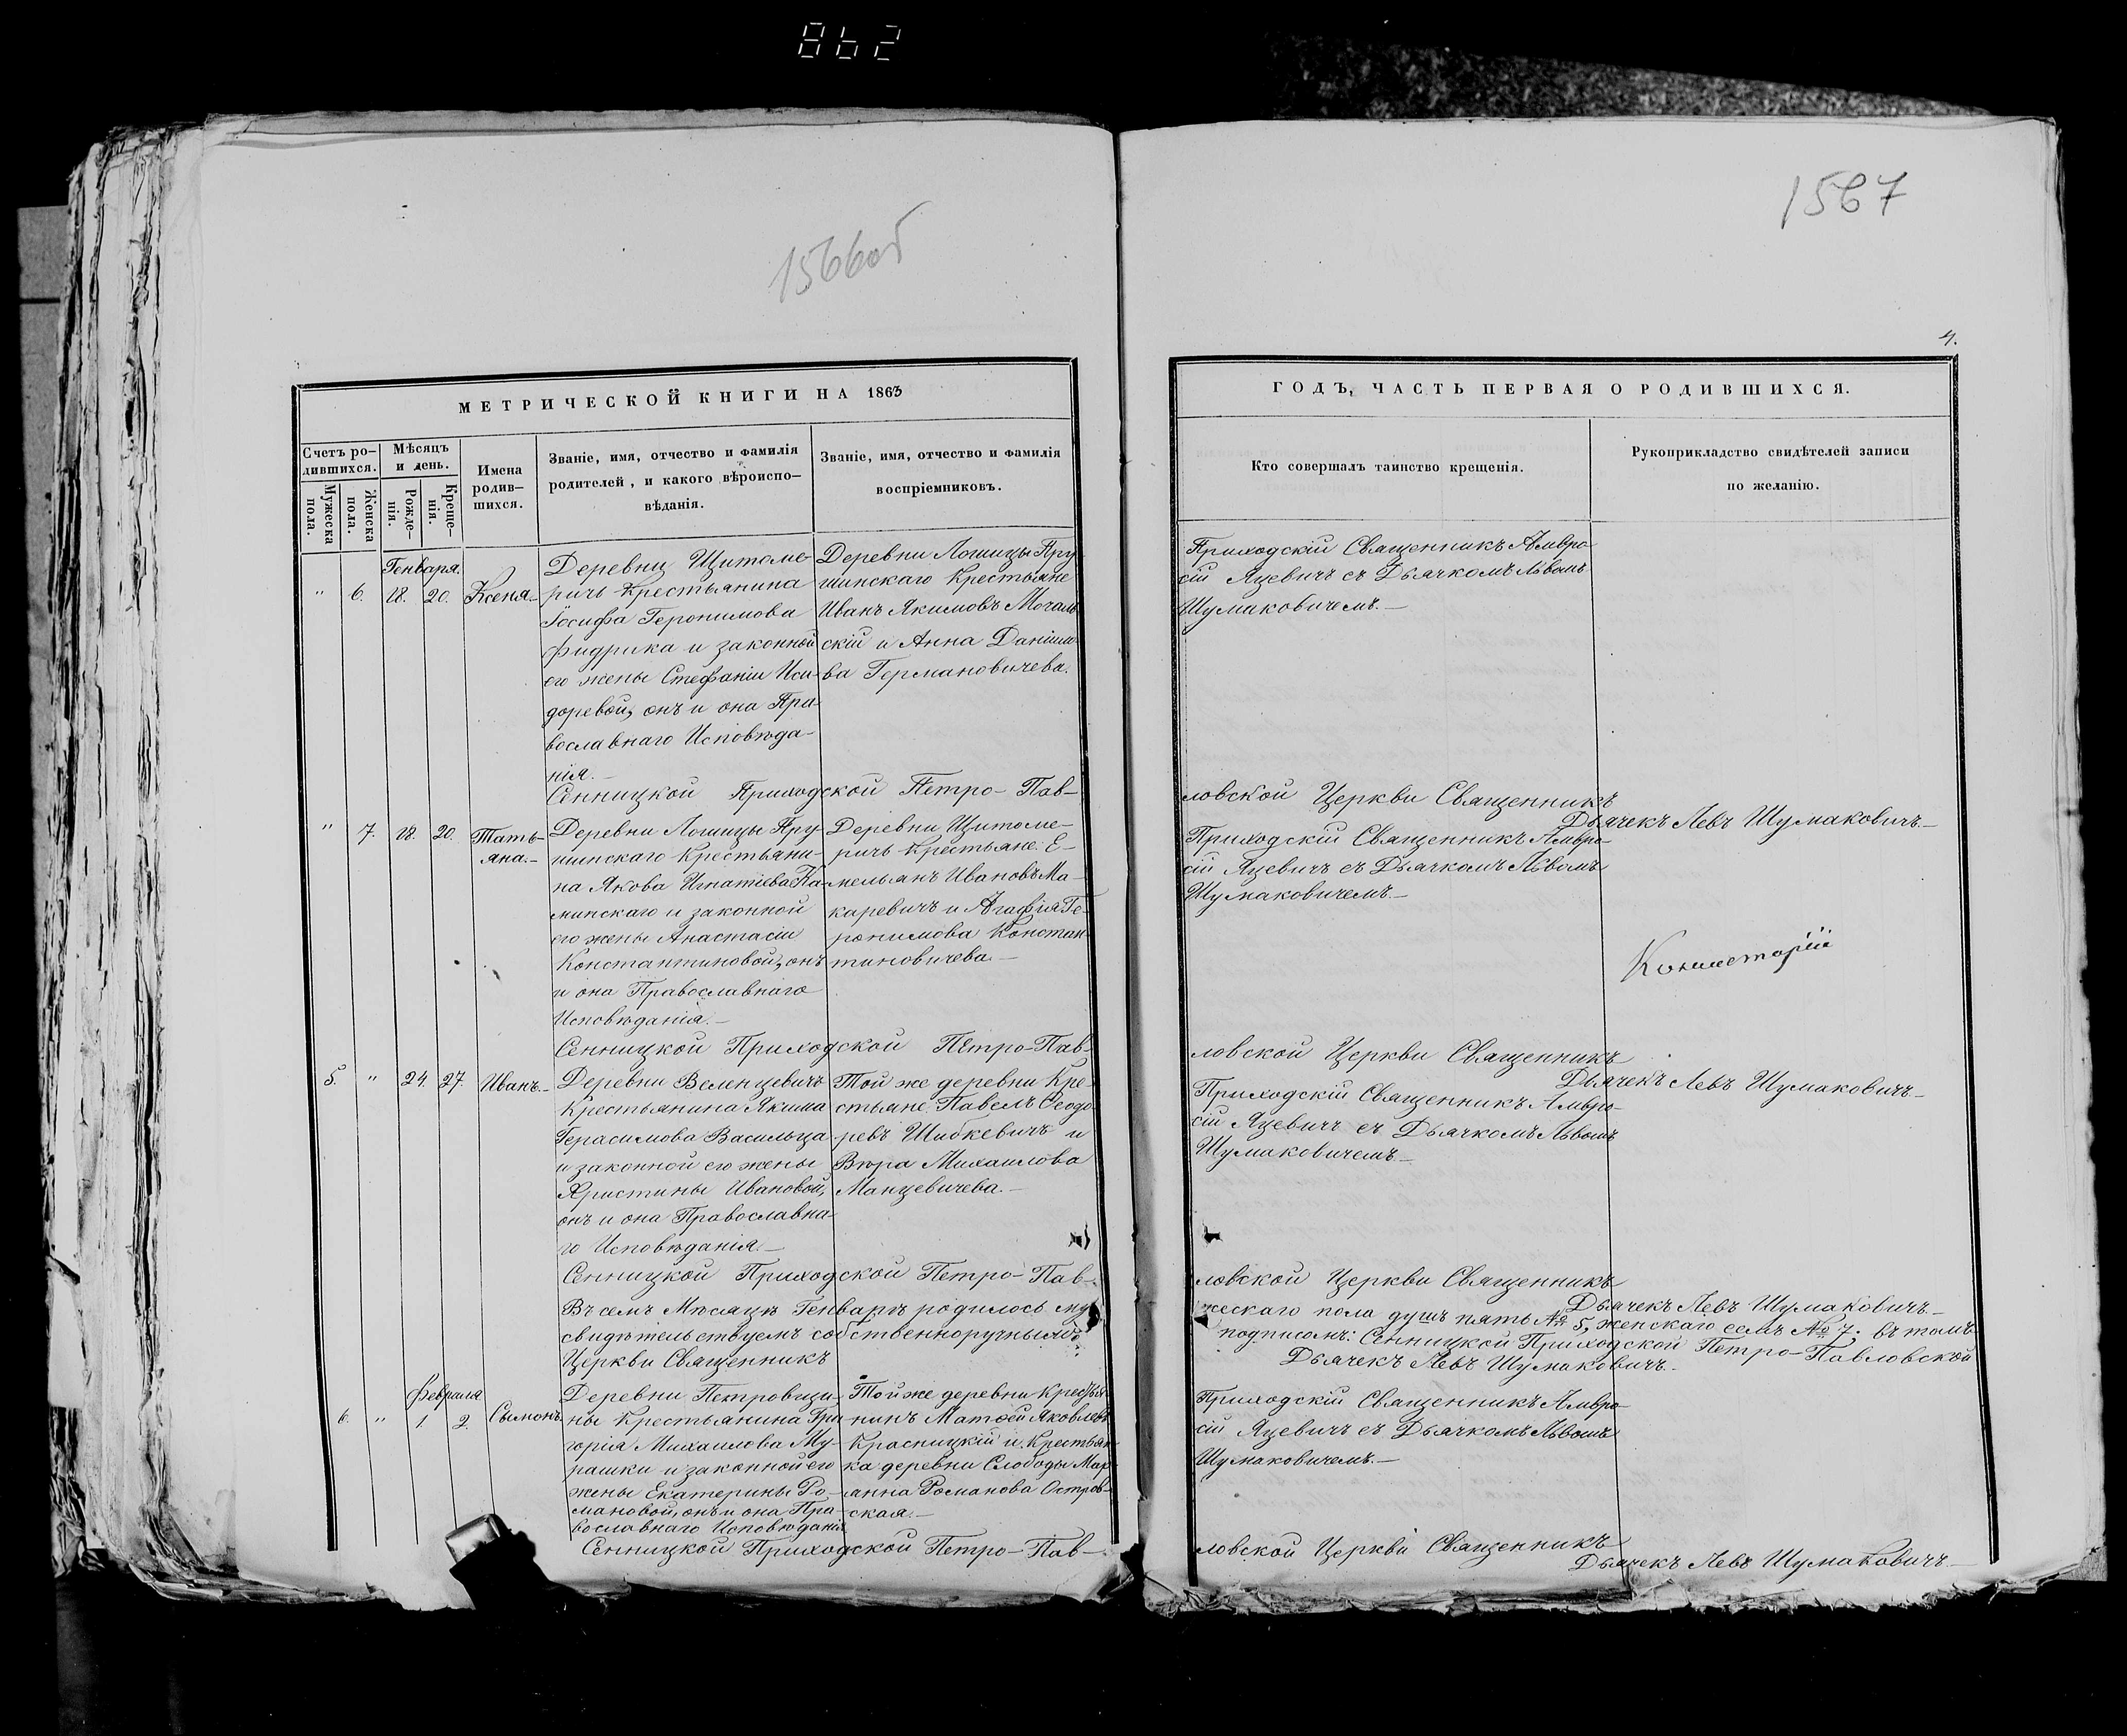 862
1566об
1567
4.
МЕТРИЧЕСКОЙ КНИГИ НА 1863
Счетъ ро-
дившихся.
Мужеска
пола.
Женска
пола.
Мѣсяцъ
и день.
Рожде-
нія.
Креще-
нія.
Имена
родив-
шихся.
Званіе, имя, отчество и фамилія
родителей, и какого вѣроиспо-
вѣданія.
Званіе, имя, отчество и фамилія
воспріемниковъ.
ГОДЪ, ЧАСТЬ ПЕРВАЯ О РОДИВШИХСЯ.
Кто совершалъ таинство крещенія.
Рукоприкладство свидѣтелей записи
по желанію.
Генваря.
" 6. 18. 20. Ксенія.-
Деревни Щитоме-
ричь Крестьянина
Іосифа Геронимова
Фидрика и законной
его жены Стефаніи Иси-
доревой, онъ и она Пра-
вославнаго Исповѣда-
нія.-
Деревни Лошицы Пру-
шинскаго Крестьяне
Иванъ Якимовъ Мочаль
скій и Анна Даніило-
ва Германовичева.
Приходскій Священникъ Амвро-
сій Яцевичъ съ Дьячкомъ Львомъ
Шумаковичемъ.-
Сенницкой Приходской Петро-Пав-
ловской Церкви Священникъ
Дьячекъ Левъ Шумаковичъ.-
" 7. 18. 20. Тать-
яна.-
Деревни Лошицы Пру-
шинскаго Крестьяни-
на Якова Игнатіева Ка-
минскаго и законной
его жены Анастасіи
Константиновой, онъ
и она Православнаго
Исповѣданія.-
Деревни Щитоме-
ричь Крестьяне: Е-
мельянъ Ивановъ Ма-
каревичъ и Агафія Ге-
ронимова Констан-
тиновичева.-
Приходскій Священникъ Амвро-
сій Яцевичъ съ Дьячкомъ Львомъ
Шумаковичемъ.-
Консисторіи
Сенницкой Приходской Петро-Пав-
ловской Церкви Священникъ
Дьячекъ Левъ Шумаковичъ.-
5. " 24. 27. Иванъ.-
Деревни Велницевичъ
Крестьянина Якима
Герасимова Васильца
и законной его жены
Христины Ивановой,
онъ и она Православна-
го Исповѣданія.-
Той же деревни Кре-
стьяне: Павелъ Ѳеодо-
ревъ Шибкевичъ и
Вѣра Михаилова
Манцевичева.-
Приходскій Священникъ Амвро-
сій Яцевичъ съ Дьячкомъ Львомъ
Шумаковичемъ.-
Сенницкой Приходской Петро-Пав-
ловской Церкви Священникъ
Дьячекъ Левъ Шумаковичъ.-
Въ семъ Мѣсяцѣ Генварѣ родилось му-
жескаго пола душъ пять № 5, женскаго семь № 7; въ томъ
свидѣтельствуемъ собственноручнымъ
подписомъ: Сенницкой Приходской Петро-Павловской
Церкви Священникъ
Дьячекъ Левъ Шумаковичъ.
Февраля
6. " 1. 2. Сымонъ.
Деревни Петровщи-
ны Крестьянина Гри-
горія Михаилова Му-
рашки и законной его
жены Екатерины Ро-
мановой, онъ и она Пра-
вославнаго Исповѣданія
Той же деревни Крестья-
нинъ Матѳей Яковлевъ
Красницкій и Крестьян-
ка деревни Слободы Мар-
іанна Романова Остров-
ская.-
Приходскій Священникъ Амвро-
сій Яцевичъ съ Дьячкомъ Львомъ
Шумаковичемъ.-
Сенницкой Приходской Петро-Пав-
ловской Церкви Священникъ
Дьячекъ Левъ Шумаковичъ.-